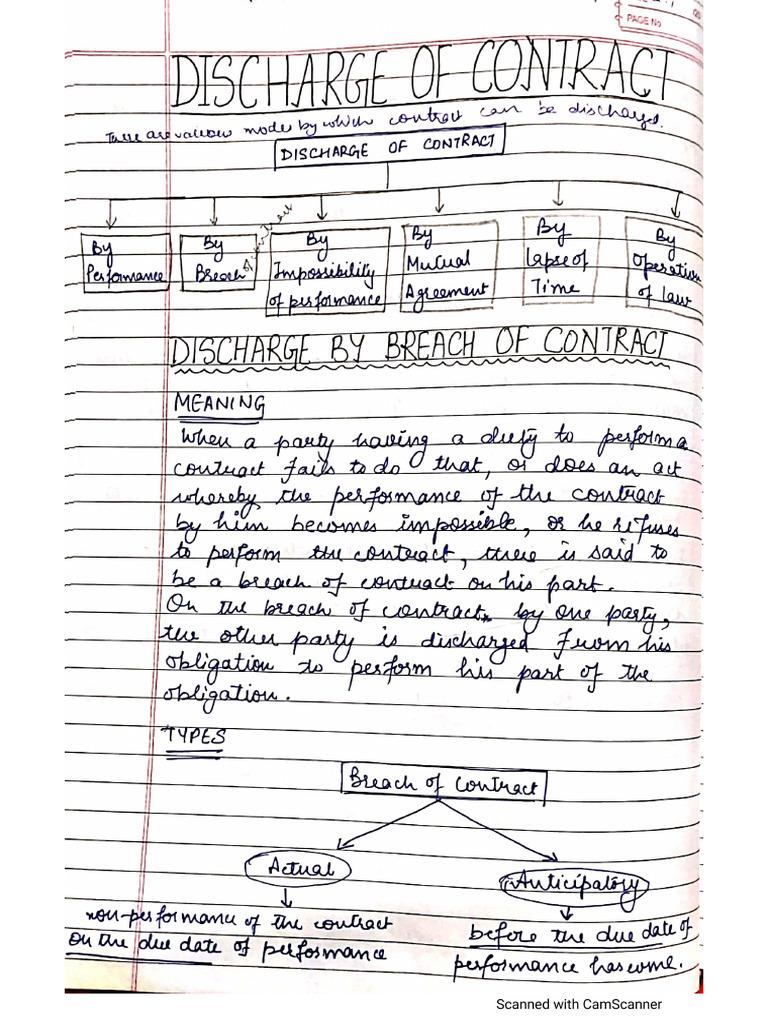 PAGE No
DISCHARGE OF CONTRACT
There are various modes by which contract can be discharge.
DISCHARGE OF CONTRACT
By Performance
By Breach of contract
By Impossibility of performance
By Mutual Agreement
By Lapse of Time
By Operation of law
DISCHARGE BY BREACH OF CONTRACT
MEANING
When a party having a duty to perform a
contract fails to do that, or does an act
whereby the performance of the contract
by him becomes impossible, or he refuses
to perform the contract, there is said to
be a breach of contract on his part.
On the breach of contract by one party,
the other party is discharged from his
obligation to perform his part of the
obligation.
TYPES
Breach of Contract
Actual
Anticipatory
non-performance of the contract
on the due date of performance
before the due date of
performance has come.
Scanned with CamScanner